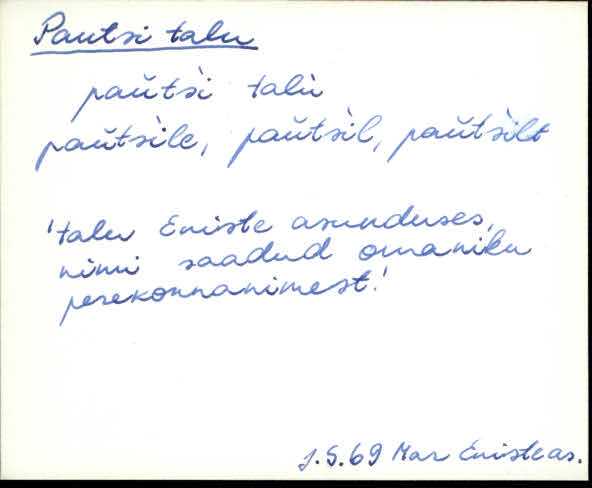 Pautsi talu
paùtsì talù
paùtsìle, paùtsìl, paùtsìlt
'talu Eniste asunduses,
nimi saadud omaniku
perekonnanimest.'
J.S.69 Mar Enisteas.